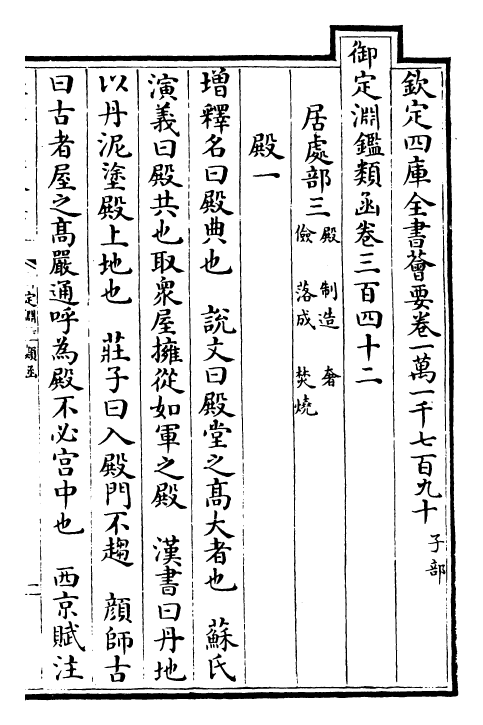 欽定四庫全書薈要卷一萬一千七百九十 子部
御定淵鑑類函卷三百四十二
居處部三 殿 制造 奢
儉 落成 焚燒
殿一
增釋名曰殿典也 說文曰殿堂之髙大者也 蘇氏
演義曰殿共也取衆屋擁從如軍之殿 漢書曰丹地
以丹泥塗殿上地也 莊子曰入殿門不趨 顔師古
曰古者屋之髙嚴通呼為殿不必宫中也 西京賦注